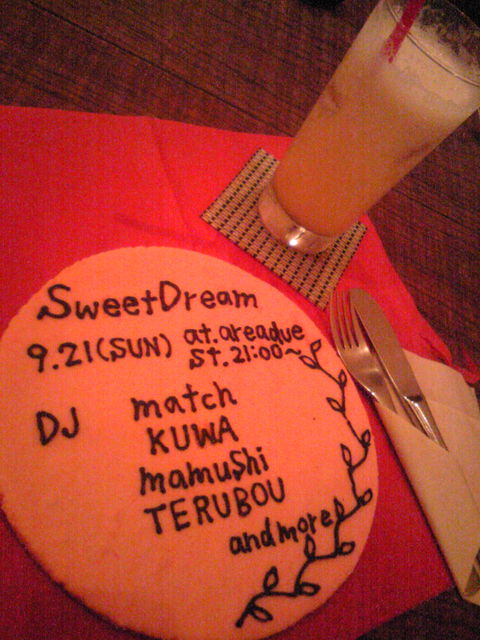 SweetDream
9.21(SUN) at.areadue
st.21:00~
DJ match
KUWA
mamuShi
TERUBOU
and more